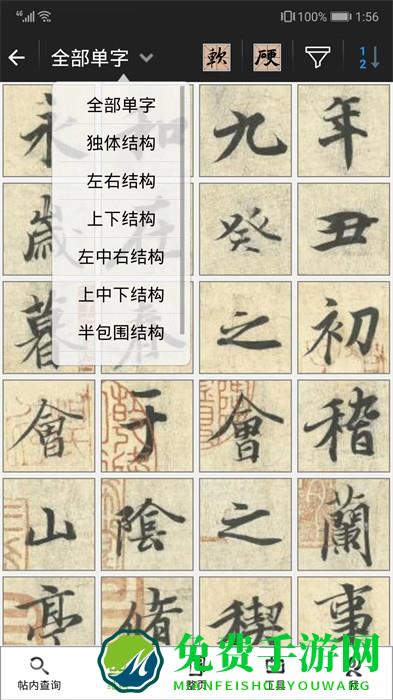 46 100% 1:56
全部单字 軟 硬 1 2
全部单字
独体结构
左右结构
上下结构
左中右结构
上中下结构
半包围结构
永 和 九 年
歲 在 癸 丑
暮 春 之 初
會 于 會 稽
山 陰 之 蘭
亭 脩 稧 事
帖内查询 整页 工具 我
免费手游网
MIANFEISHOUYOUWANG.COM